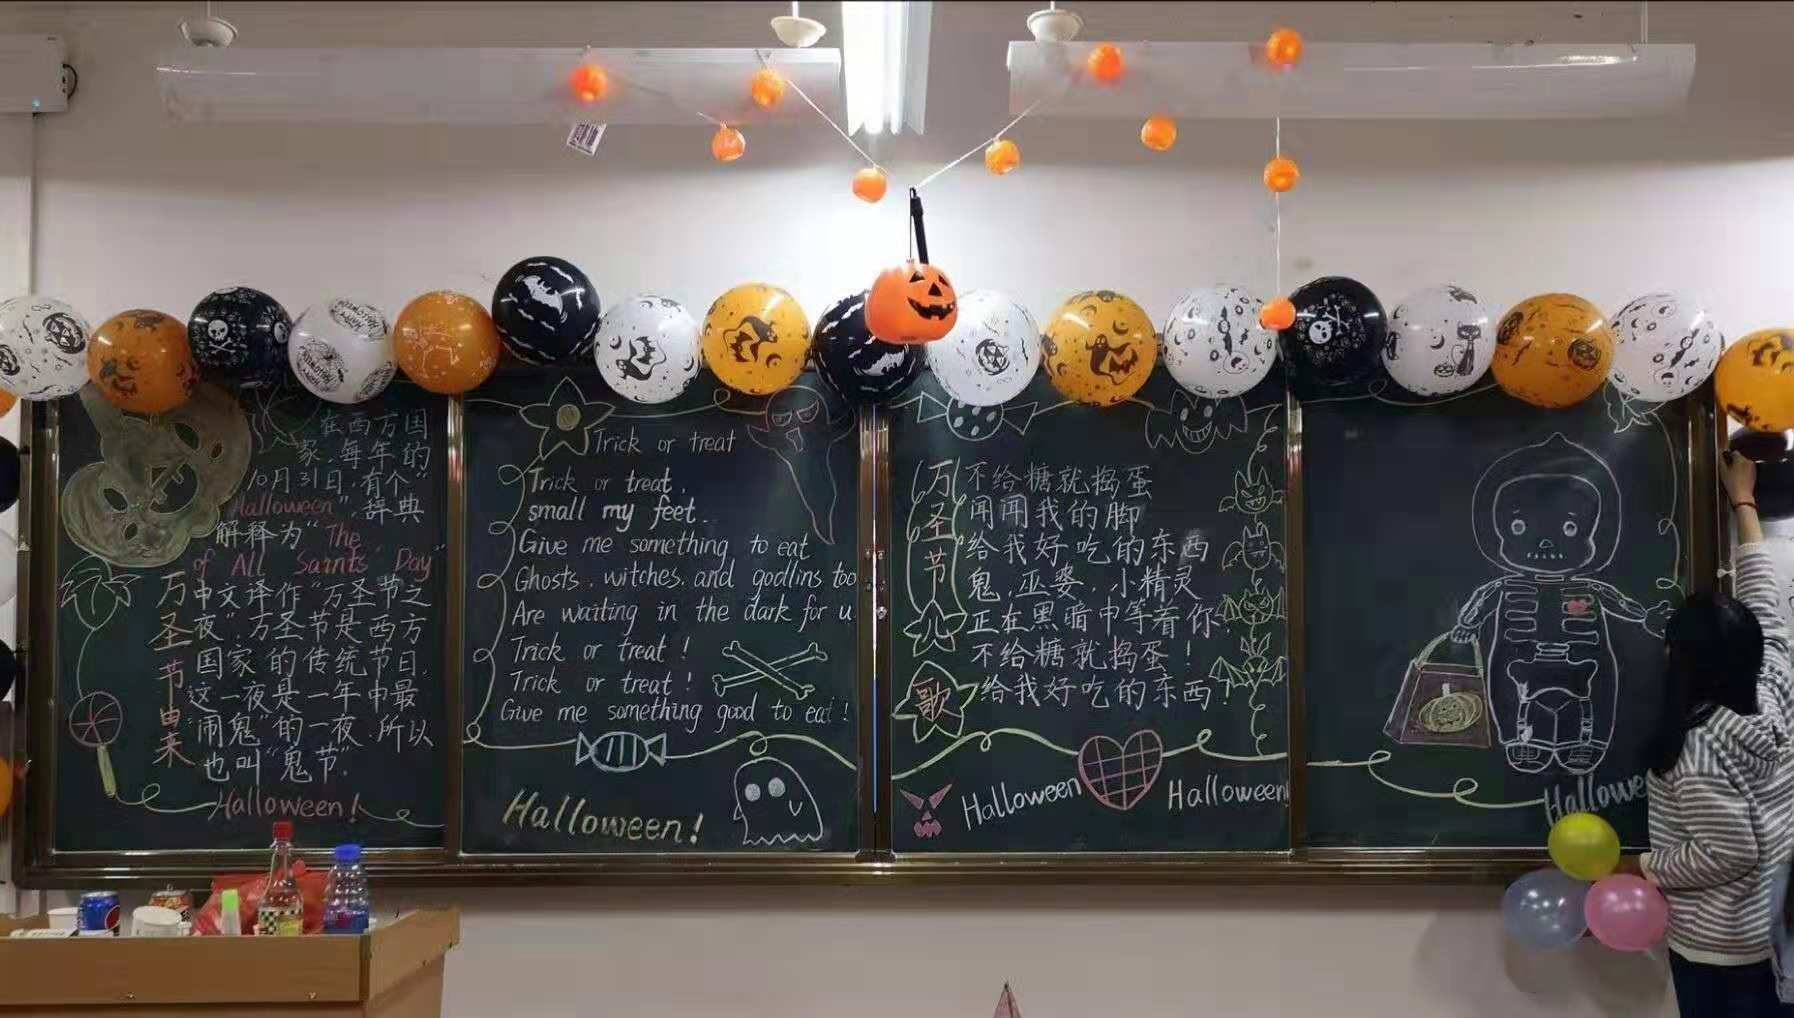 在西方国
家,每年的
10月31日,有个“
Halloween”,辞典
解释为“The
of All Saints' Day”
中文译作“万圣节之
夜”.万圣节是西方
国家的传统节日.
这一夜是一年中最
“闹鬼”的一夜.所以
也叫“鬼节”.
万圣节由来
Halloween!
Trick or treat
Trick or treat,
small my feet.
Give me something to eat
Ghosts, witches, and godlins too
Are waiting in the dark for u
Trick or treat!
Trick or treat!
Give me something good to eat!
Halloween!
万圣节儿歌
不给糖就捣蛋
闻闻我的脚
给我好吃的东西
鬼,巫婆,小精灵
正在黑暗中等着你.
不给糖就捣蛋!
给我好吃的东西!
Halloween
Halloween
Hallowe